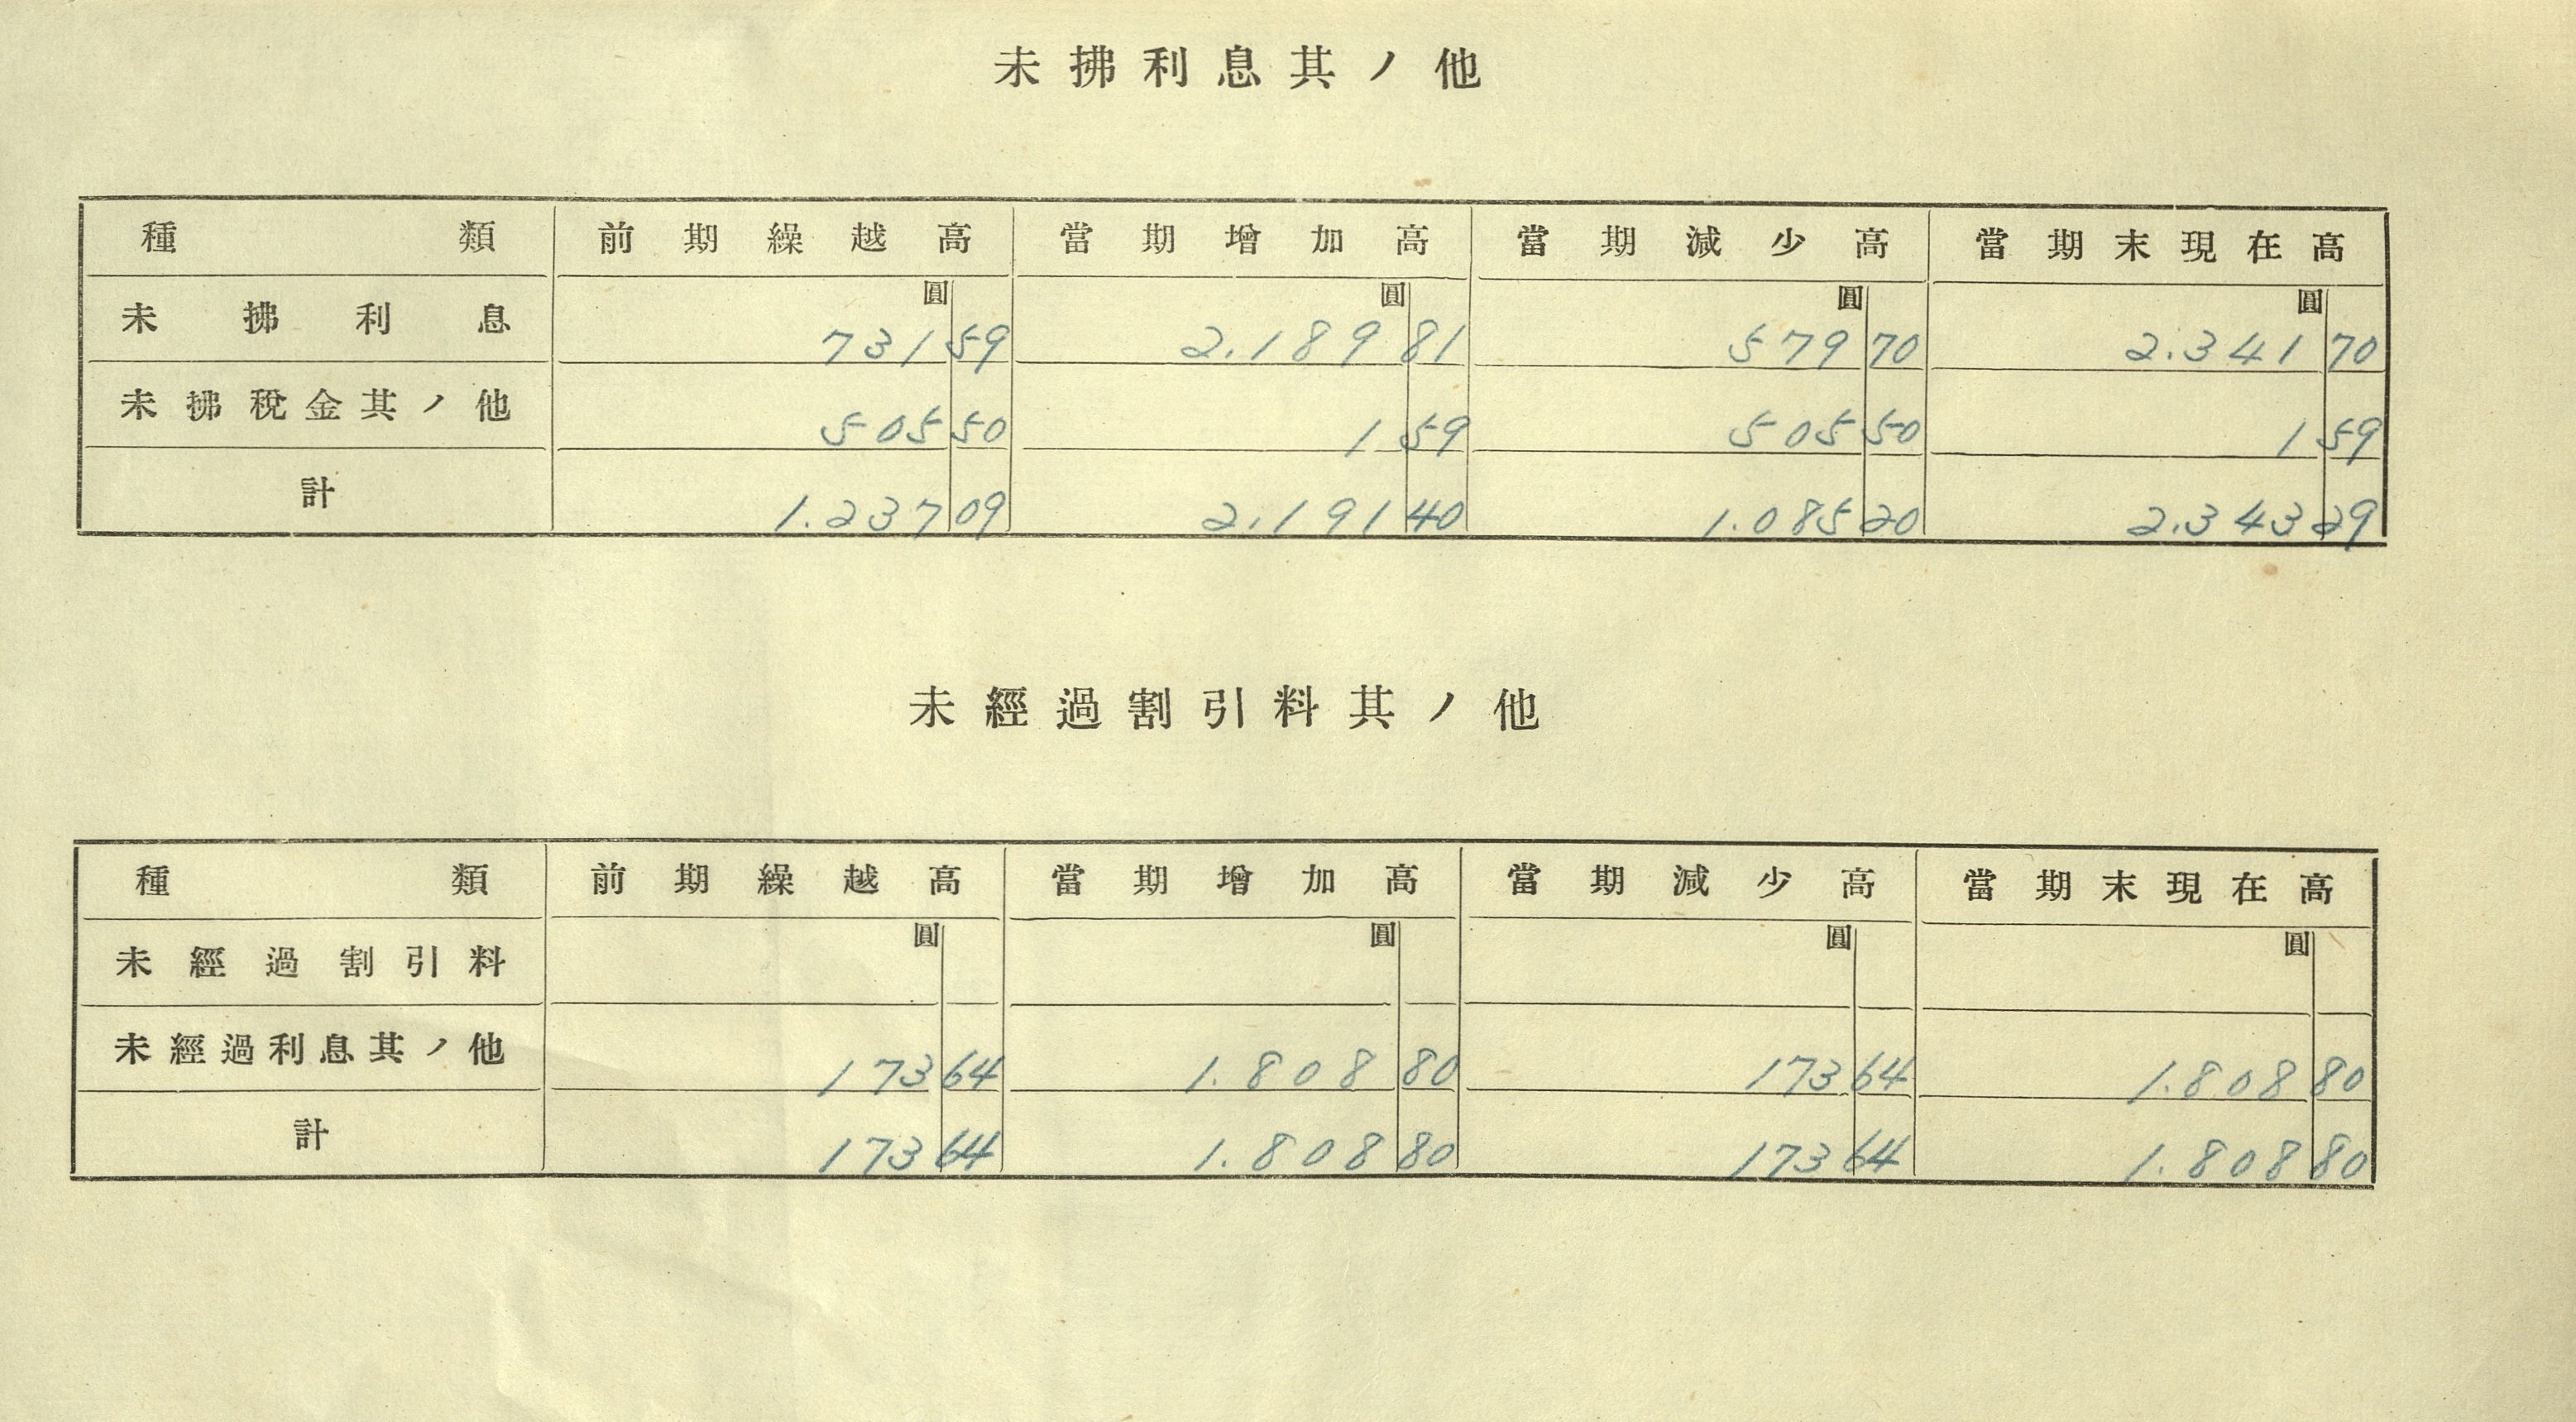 未拂利息其ノ他
種類 前期繰越高 當期增加高 當期減少高 當期末現在高
圓 圓 圓 圓
未拂利息 731 59 2.189 81 579 70 2.341 70
未拂稅金其ノ他 505 50 1 59 505 50 1 59
計 1.237 09 2.191 40 1.085 20 2.343 29
未經過割引料其ノ他
種類 前期繰越高 當期增加高 當期減少高 當期末現在高
圓 圓 圓 圓
未經過割引料
未經過利息其ノ他 173 64 1.808 80 173 64 1.808 80
計 173 64 1.808 80 173 64 1.808 80